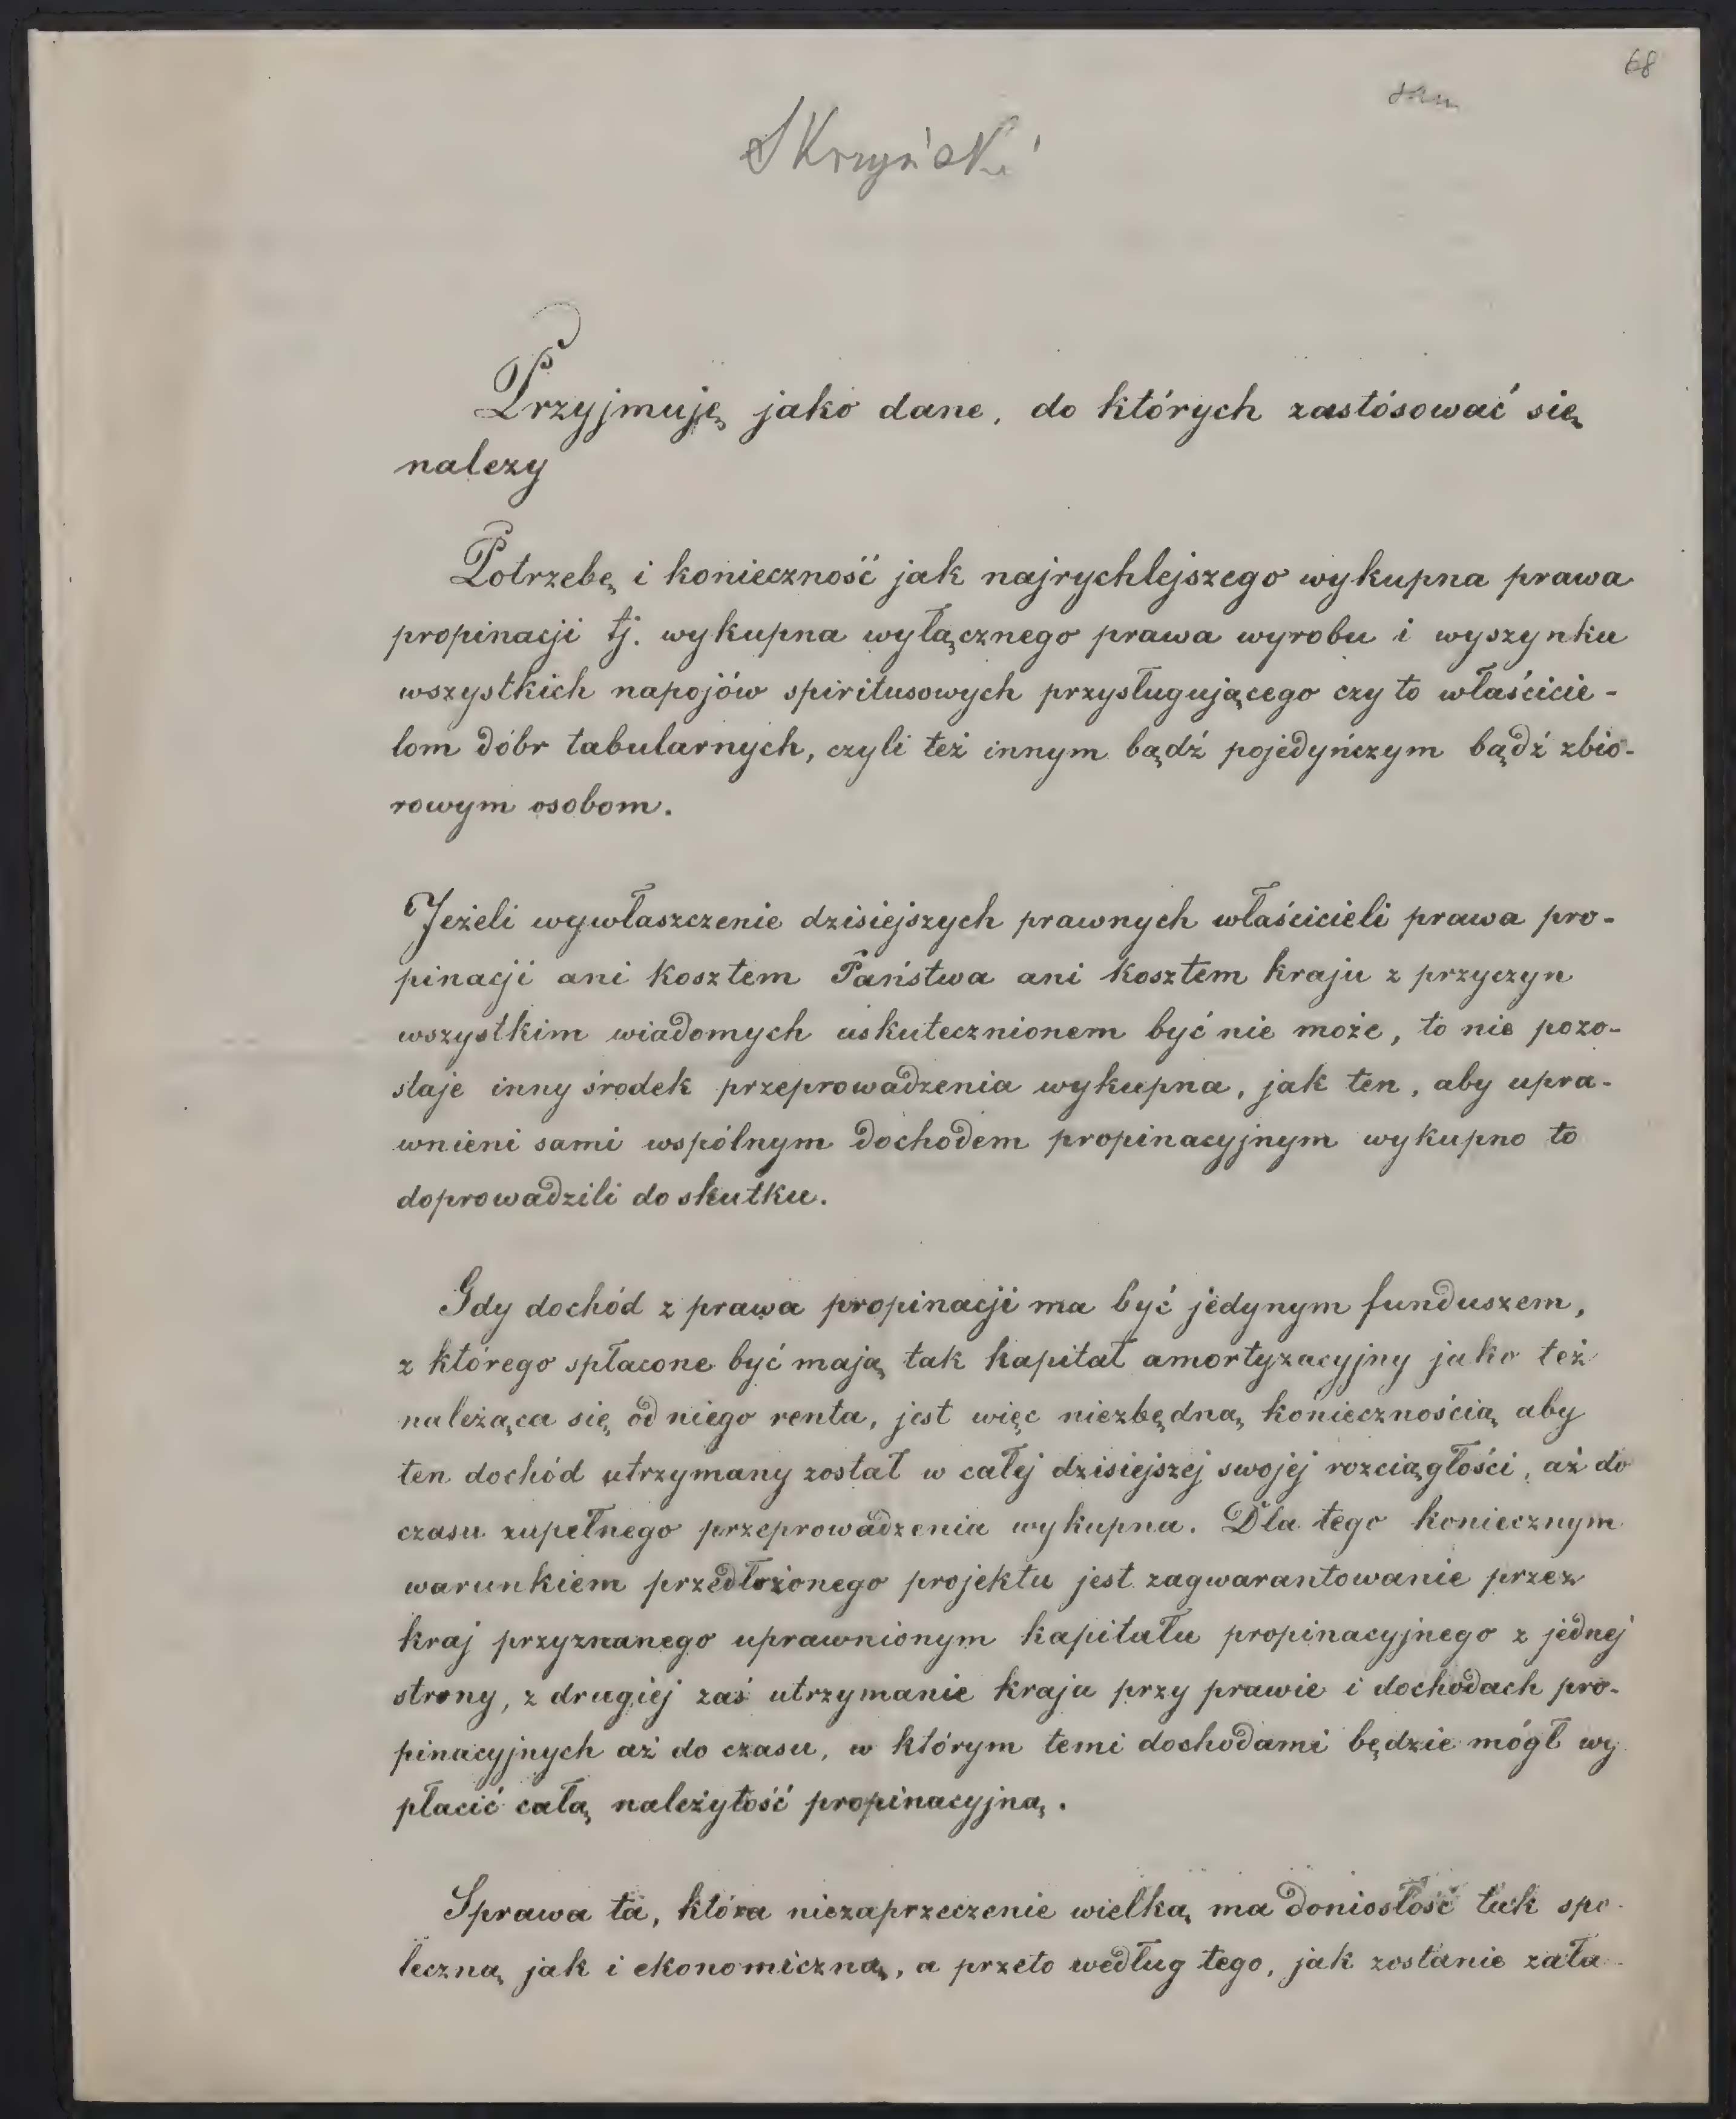 68
Skrzyński
Przyjmuję jako dane, do których zastósować się
nalezy
Potrzebę i konieczność jak najrychlejszego wykupna prawa
propinacji tj. wykupna wyłącznego prawa wyrobu i wyszynku
wszystkich napojów spiritusowych przysługującego czy to właścicie-
lom dóbr tabularnych, czyli też innym bądź pojedyńczym bądź zbio-
rowym osobom.
Jeżeli wywłaszczenie dzisiejszych prawnych właścicieli prawa pro-
pinacji ani kosztem Państwa ani kosztem kraju z przyczyn
wszystkim wiadomych uskutecznionem być nie może, to nie pozo-
staje inny środek przeprowadzenia wykupna, jak ten, aby upra-
wnieni sami wspólnym dochodem propinacyjnym wykupno to
doprowadzili do skutku.
Gdy dochód z prawa propinacji ma być jedynym funduszem,
z którego spłacone być mają tak kapitał amortyzacyjny jako też
należąca się od niego renta, jest więc niezbędną koniecznością aby
ten dochód utrzymany został w całej dzisiejszej swojéj rozciągłości, aż do
czasu zupełnego przeprowadzenia wykupna. Dla tego koniecznym
warunkiem przedłożonego projektu jest zagwarantowanie przez
kraj przyznanego uprawnionym kapitału propinacyjnego z jednéj
strony, z drugiej zaś utrzymanie kraju przy prawie i dochodach pro-
pinacyjnych aż do czasu, w którym temi dochodami będzie mógł wy
płacić całą należytość propinacyjną.
Sprawa ta, która niezaprzeczenie wielką ma doniosłość tak spo-
leczną jak i ekonomiczną, a przeto według tego, jak zostanie zała-